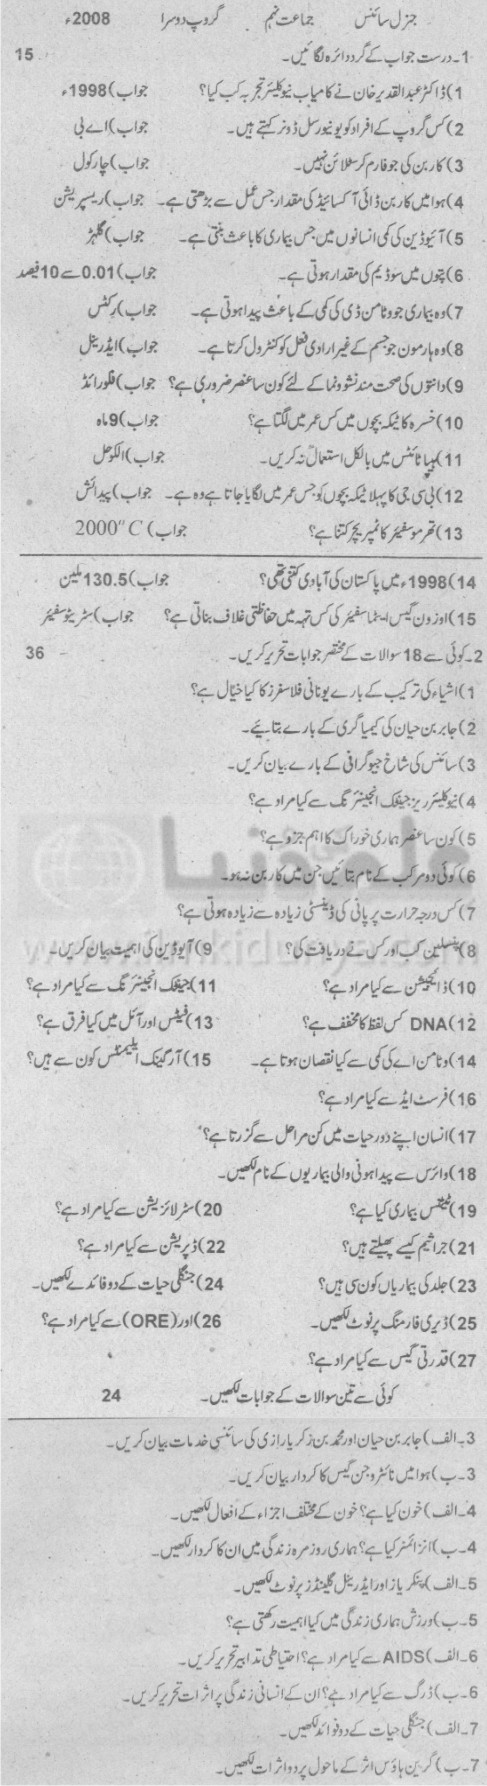 جنرل سائنس جماعت نہم گروپ دوسرا 2008ء
1۔درست جواب کے گرد دائرہ لگائیں۔ 15
1)ڈاکٹر عبدالقدیر خان نے کامیاب نیوکلیئر تجربہ کب کیا؟ جواب)1998ء
2)کس گروپ کے افراد کو یونیورسل ڈونر کہتے ہیں۔ جواب)اے بی
3)کاربن کی جو فارم کرسٹلائن نہیں۔ جواب)چارکول
4)ہوا میں کاربن ڈائی آکسائیڈ کی مقدار جس عمل سے بڑھتی ہے۔ جواب)ریسپریشن
5)آئیوڈین کی کمی انسانوں میں جس بیماری کا باعث بنتی ہے۔ جواب)گلہڑ
6)پتوں میں سوڈیم کی مقدار ہوتی ہے۔ جواب)0.01سے10فیصد
7)وہ بیماری جو وٹامن ڈی کی کمی کے باعث پیدا ہوتی ہے۔ جواب)رکٹس
8)وہ ہارمون جو جسم کے غیر ارادی فعل کو کنٹرول کرتا ہے۔ جواب)ایڈرینل
9)دانتوں کی صحت مند نشوونما کے لئے کون سا عنصر ضروری ہے؟ جواب)فلورائڈ
10)خسرہ کا ٹیکہ بچوں میں کس عمر میں لگتا ہے؟ جواب)9ماہ
11)ہیپاٹائٹس میں بالکل استعمال نہ کریں۔ جواب)الکوحل
12)بی سی جی کا پہلا ٹیکہ بچوں کو جس عمر میں لگایا جاتا ہے وہ ہے۔ جواب)پیدائش
13)تھرموسفیئر کا ٹمپریچر کتنا ہے؟ جواب)2000"C
14)1998ء میں پاکستان کی آبادی کتنی تھی؟ جواب)130.5ملین
15)اوزون گیس ایٹماسفیئر کی کس تہہ میں حفاظتی غلاف بناتی ہے؟ جواب)سٹریٹوسفیئر
2۔کوئی سے18سوالات کے مختصر جوابات تحریر کریں۔ 36
1)اشیاء کی ترکیب کے بارے یونانی فلاسفرز کا کیا خیال ہے؟
2)جابر بن حیان کی کیمیا گری کے بارے بتائیے۔
3)سائنس کی شاخ جیوگرافی کے بارے بیان کریں۔
4)نیوکلیئر ریز جینیٹک انجینئرنگ سے کیا مراد ہے؟
5)کون سا عنصر ہماری خوراک کا اہم جزو ہے؟
6)کوئی دو مرکب کے نام بتائیں جن میں کاربن نہ ہو۔
7)کس درجہ حرارت پر پانی کی ڈینسٹی زیادہ سے زیادہ ہوتی ہے؟
8)پنسلین کب اور کس نے دریافت کی؟ 9)آیوڈین کی اہمیت بیان کریں۔
10)ڈائجیشن سے کیا مراد ہے؟ 11)جینیٹک انجینئرنگ سے کیا مراد ہے؟
12)DNA کس لفظ کا مخفف ہے؟ 13)فیٹس اور آئل میں کیا فرق ہے؟
14)وٹامن اے کی کمی سے کیا نقصان ہوتا ہے۔ 15)آرگینک ایلیمنٹس کون سے ہیں؟
16)فرسٹ ایڈ سے کیا مراد ہے؟
17)انسان اپنے دور حیات میں کن مراحل سے گزرتا ہے؟
18)وائرس سے پیدا ہونی والی بیماریوں کے نام لکھیں۔
19)ٹیٹنس بیماری کیا ہے؟ 20)سٹرلائزیشن سے کیا مراد ہے؟
21)جراثیم کیسے پھیلتے ہیں؟ 22)ڈپریشن سے کیا مراد ہے؟
23)جلد کی بیماریاں کون سی ہیں؟ 24)جنگلی حیات کے دو فائدے لکھیں۔
25)ڈیری فارمنگ پر نوٹ لکھیں۔ 26)اور(ORE)سے کیا مراد ہے؟
27)قدرتی گیس سے کیا مراد ہے؟
کوئی سے تین سوالات کے جوابات لکھیں۔ 24
3۔الف)جابر بن حیان اور محمد بن زکریا رازی کی سائنسی خدمات بیان کریں۔
3۔ب)ہوا میں نائٹروجن گیس کا کردار بیان کریں۔
4۔الف)خون کیا ہے؟ خون کے مختلف اجزاء کے افعال لکھیں۔
4۔ب)انزائمز کیا ہے؟ ہماری روزمرہ زندگی میں ان کا کردار لکھیں۔
5۔الف)پنکریاز اور ایڈرینل گلینڈز پر نوٹ لکھیں۔
5۔ب)ورزش ہماری زندگی میں کیا اہمیت رکھتی ہے؟
6۔الف)AIDS سے کیا مراد ہے؟ احتیاطی تدابیر تحریر کریں۔
6۔ب)ڈرگ سے کیا مراد ہے؟ ان کے انسانی زندگی پر اثرات تحریر کریں۔
7۔الف)جنگلی حیات کے دو فوائد لکھیں۔
7۔ب)گرین ہاؤس اثر کے ماحول پر دو اثرات لکھیں۔